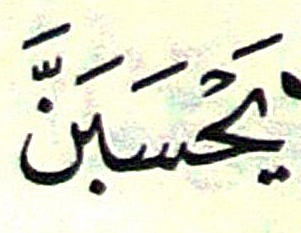 يَحْسَبَنَّ